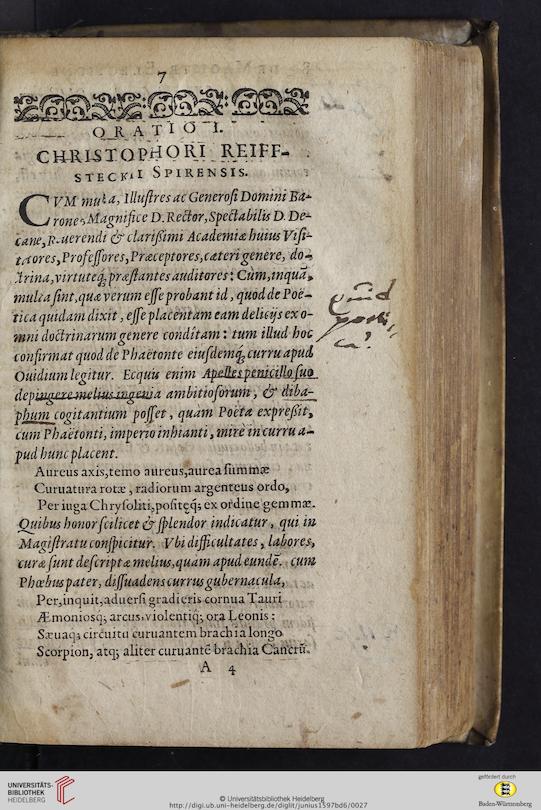 7
ORATIO I.
CHRISTOPHORI REIFF-
STECKII SPIRENSIS.
CVM multa, Illustres ac Generosi Domini Ba-
rones, Magnifice D. Rector, Spectabilis D. De-
cane, Reuerendi & clarißimi Academiæ huius Visi-
tatores, Professores, Præceptores, cæteri genere, do-
ctrina, virtuteq́, præstantes auditores: Cùm, inquā,
multa sint, quæ verum esse probant id, quod de Poë-
tica quidam dixit, esse placentam eam delicijs ex o-
mni doctrinarum genere conditam: tum illud hoc
confirmat quod de Phaëtonte eiusdemq́, curru apud
Ouidium legitur. Ecquis enim Apelles penicillo suo
depingere melius ingenia ambitiosorum, & diba-
phum cogitantium posset, quàm Poëta expreßit,
cum Phaëtonti, imperio inhianti, mirè in curru a-
pud hunc placent.
Aureus axis, temo aureus, aurea summæ
Curuatura rotæ, radiorum argenteus ordo,
Per iuga Chrysoliti, positęq́; ex ordine gemmæ.
Quibus honor scilicet & splendor indicatur, qui in
Magistratu conspicitur. Vbi difficultates, labores,
curæ sunt descriptæ melius, quàm apud eundē. cum
Phœbus pater, dissuadens currus gubernacula,
Per, inquit, aduersi gradieris cornua Tauri
Æmoniosq́; arcus, violentiq́; ora Leonis:
Sæuaq́; circuitu curuantem brachia longo
Scorpion, atq́; aliter curuantē brachia Cancrū.
A 4
quid
poeti,
ca?
UNIVERSITÄTS-
BIBLIOTHEK
HEIDELBERG
© Universitätsbibliothek Heidelberg
http://digi.ub.uni-heidelberg.de/diglit/junius1597bd6/0027
gefördert durch
Baden-Württemberg